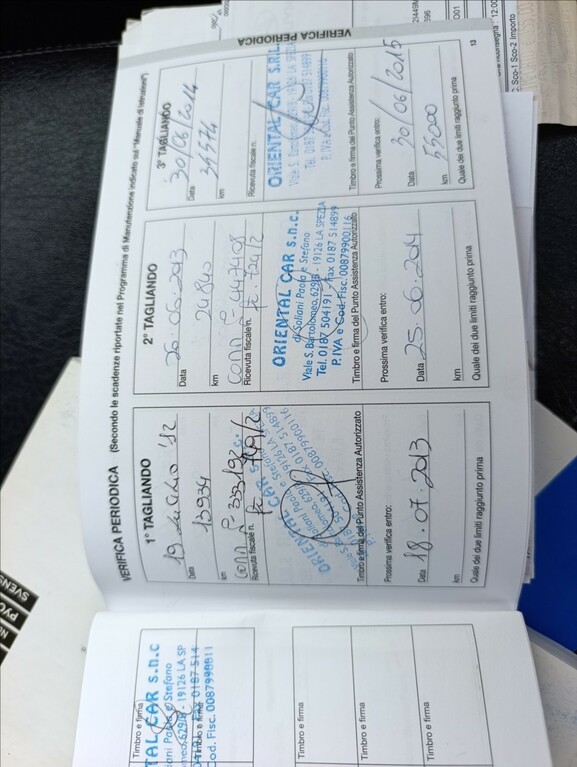 VERIFICA PERIODICA (Secondo le scadenze riportate nel Programma di Manutenzione indicato sul "Manuale di Istruzioni")
1° TAGLIANDO
19 Luglio '12
Data
13934
km
Ricevuta fiscale n.
ORIENTAL CAR s.n.c.
Timbro e firma del Punto Assistenza Autorizzato
Prossima verifica entro:
Data 18.07.2013
km
Quale dei due limiti raggiunto prima
2° TAGLIANDO
26.06.2013
Data
24840
km
Ricevuta fiscale n.
ORIENTAL CAR s.n.c.
di Soliani Paolo e Stefano
Viale S. Bartolomeo, 629/B - 19126 LA SPEZIA
Tel. 0187 504191 - Fax 0187 514899
P. IVA e Cod. Fisc. 00879900116
Timbro e firma del Punto Assistenza Autorizzato
Prossima verifica entro:
Data 25.06.2014
km
Quale dei due limiti raggiunto prima
3° TAGLIANDO
30/06/2014
Data
39574
km
Ricevuta fiscale n.
ORIENTAL CAR S.R.L.
Timbro e firma del Punto Assistenza Autorizzato
Prossima verifica entro:
30/06/2015
Data
55000
km
Quale dei due limiti raggiunto prima
13
VERIFICA PERIODICA
Timbro e firma
TAL CAR s.n.c
iani Paolo e Stefano
- 19126 LA SP
Timbro e firma
Cod. Fisc. 0087990011
Timbro e firma
Timbro e firma
Sco-1 Sco-2 Importo